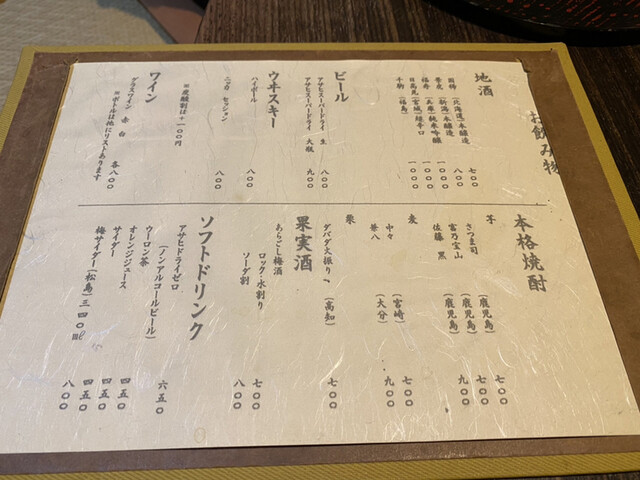 お飲み物
地酒
国稀 (北海道)本醸造 七〇〇
(新潟)本醸造 八〇〇
福寿 (兵庫)純米吟醸 一〇〇〇
日高見 (宮城)超辛口 一〇〇〇
千駒 (福島) 一〇〇〇
ビール
アサヒスーパードライ 生 八〇〇
アサヒスーパードライ 大瓶 九〇〇
ウヰスキー
ハイボール 八〇〇
ニッカ セッション 八〇〇
※炭酸割は+一〇〇円
ワイン
グラスワイン 赤 白 各八〇〇
※ボトルは他にリストあります
本格焼酎
芋
さつま司 (鹿児島) 七〇〇
富乃宝山 (鹿児島) 七〇〇
佐藤 黒 (鹿児島) 九〇〇
麦
中々 (宮崎) 七〇〇
兼八 (大分) 九〇〇
栗
ダバダ火振り (高知) 七〇〇
果実酒
あらごし梅酒
ロック・水割り 七〇〇
ソーダ割 八〇〇
ソフトドリンク
アサヒドライゼロ
(ノンアルコールビール) 六五〇
ウーロン茶 四五〇
オレンジジュース 四五〇
サイダー 四五〇
梅サイダー(松島)三四〇㎖ 八〇〇